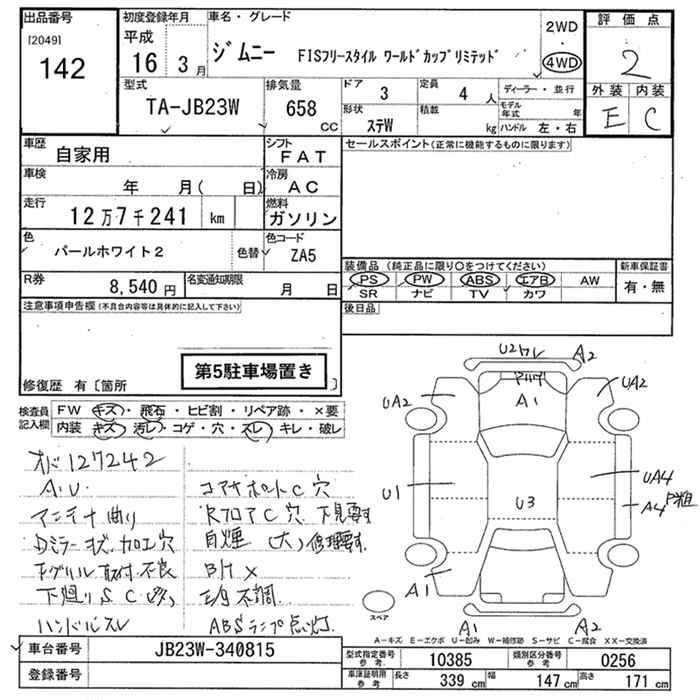 出品番号
[2049]
142
初度登録年月
平成
16 3月
車名・グレード
ジムニー FISフリースタイル ワールドカップリミテッド
2WD
・
4WD
評価点
2
外装 内装
E C
型式
TA-JB23W
排気量
658 cc
ドア 3
定員 4 人
形状 ステW
積載 kg
ディーラー・並行
モデル年式 年
ハンドル 左・右
車歴
自家用
シフト
FAT
車検
年 月( 日)
冷房
AC
走行
12万7千241 km
燃料
ガソリン
色
パールホワイト2
色替
色コード
ZA5
R券
8,540円
名変通知期限
月 日
注意事項申告欄(不具合内容等は具体的に記入して下さい)
第5駐車場置き
修復歴 有〔箇所
セールスポイント(正常に機能するものに限ります)
装備品(純正品に限り○をつけてください)
PS PW ABS エアB AW
SR ナビ TV カワ
新車保証書
有・無
後日品
検査員記入欄
FW キズ・飛石・ヒビ割・リペア跡・×要
内装 キズ・汚レ・コゲ・穴・スレ・キレ・破レ
オド127242
A.U.
アンテナ曲り
Dミラー状.加工穴
下廻りSC
ハンドルスレ
コアサポートC穴
RフロアC穴.下見要す
自煙(大)修理要す.
B H X
不調.
ABSランプ点灯.
U2ワレ
A2
A1
UA2
UA2
U1
U3
UA4
A4
A1
A1
A2
スペア
A-キズ E-エクボ U-凹み W-補修跡 S-サビ C-腐食 XX-交換済
車台番号
JB23W-340815
登録番号
型式指定番号 参考
10385
類別区分番号 参考
0256
車庫証明用 参考
長さ 339 cm
幅 147 cm
高さ 171 cm